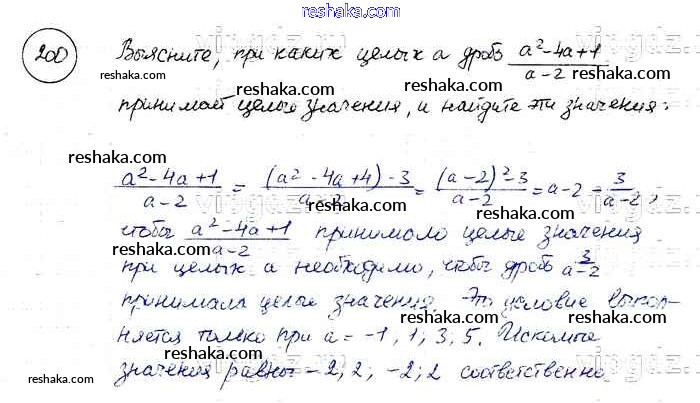 reshaka.com
200 Выясните, при каких целых a дробь (a²-4a+1)/(a-2)
reshaka.com
принимает целые значения, и найдите эти значения:
reshaka.com
(a²-4a+1)/(a-2) = ((a²-4a+4)-3)/(a-2) = ((a-2)²-3)/(a-2) = a-2 - 3/(a-2),
reshaka.com
чтобы (a²-4a+1)/(a-2) принимало целые значения
reshaka.com
при целых a необходимо, чтобы дробь 3/(a-2)
reshaka.com
принимала целые значения. Это условие выпол-
reshaka.com
няется только при a = -1, 1; 3; 5. Искомые
reshaka.com
значения равны -2; 2; -2; 2 соответственно
reshaka.com